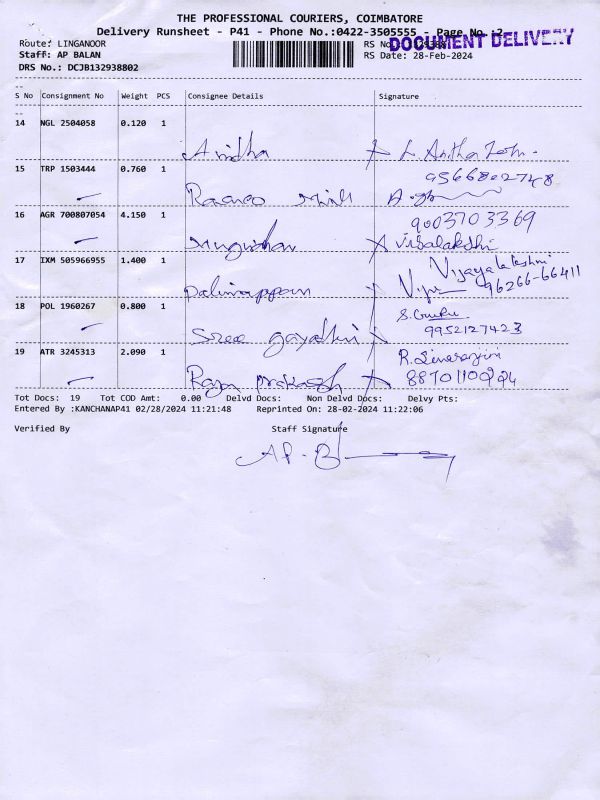 THE PROFESSIONAL COURIERS, COIMBATORE
Delivery Runsheet - P41 - Phone No.:0422-3505555 - Page No. :2
Route: LINGANOOR
RS No
DOCUMENT DELIVERY
Staff: AP BALAN
RS Date: 28-Feb-2024
DRS No.: DCJB132938802
S No Consignment No Weight PCS Consignee Details Signature
14 NGL 2504058 0.120 1
Anidha
L. Anitha
15 TRP 1503444 0.760 1
9566802748
16 AGR 700807054 4.150 1
9003703369
Murugeshan
Visalakshi
17 IXM 505966955 1.400 1
Vijayalakshmi
96266-66411
18 POL 1960267 0.800 1
S. Guru
9952127423
Sree gayathri
19 ATR 3245313 2.090 1
Raja prakash
Tot Docs: 19 Tot COD Amt: 0.00 Delvd Docs: Non Delvd Docs: Delvy Pts:
Entered By :KANCHANAP41 02/28/2024 11:21:48 Reprinted On: 28-02-2024 11:22:06
Verified By Staff Signature
AP. B